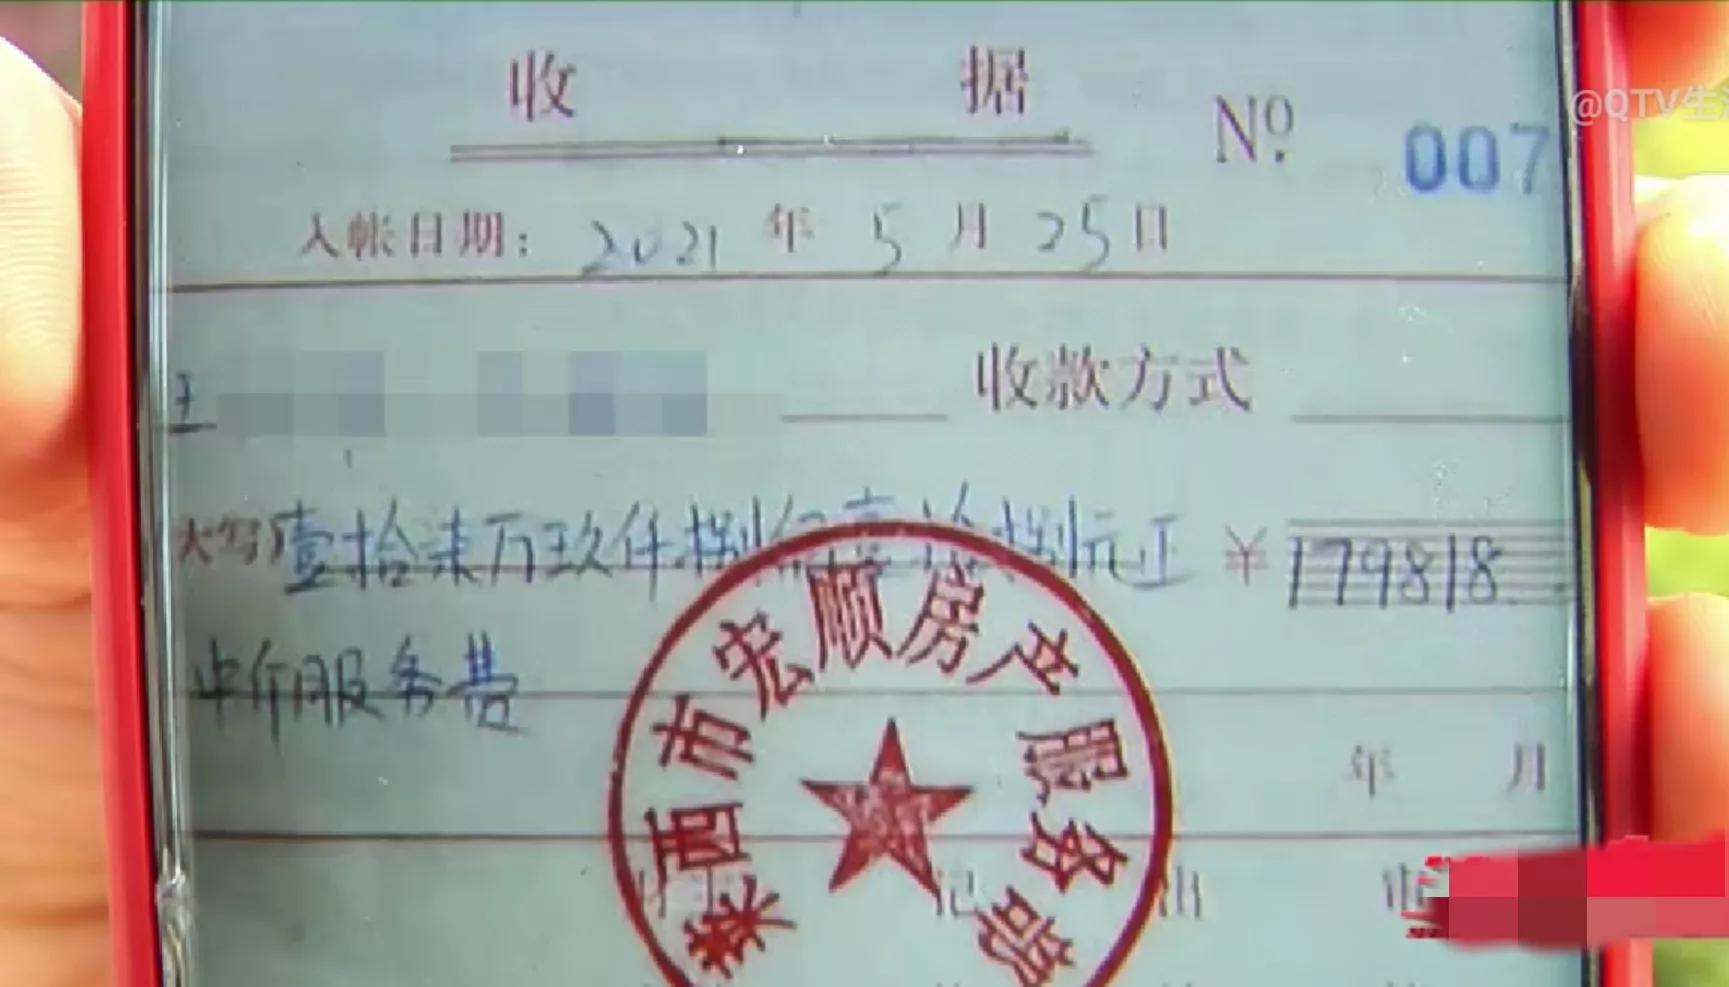 收 据
Nº 007
@QTV生
入帐日期： 2021 年 5 月 25 日
收款方式
大写）壹拾柒万玖仟捌佰壹拾捌元正 ￥179818
中介服务费
莱西市宏顺房产服务部
年 月
记 出